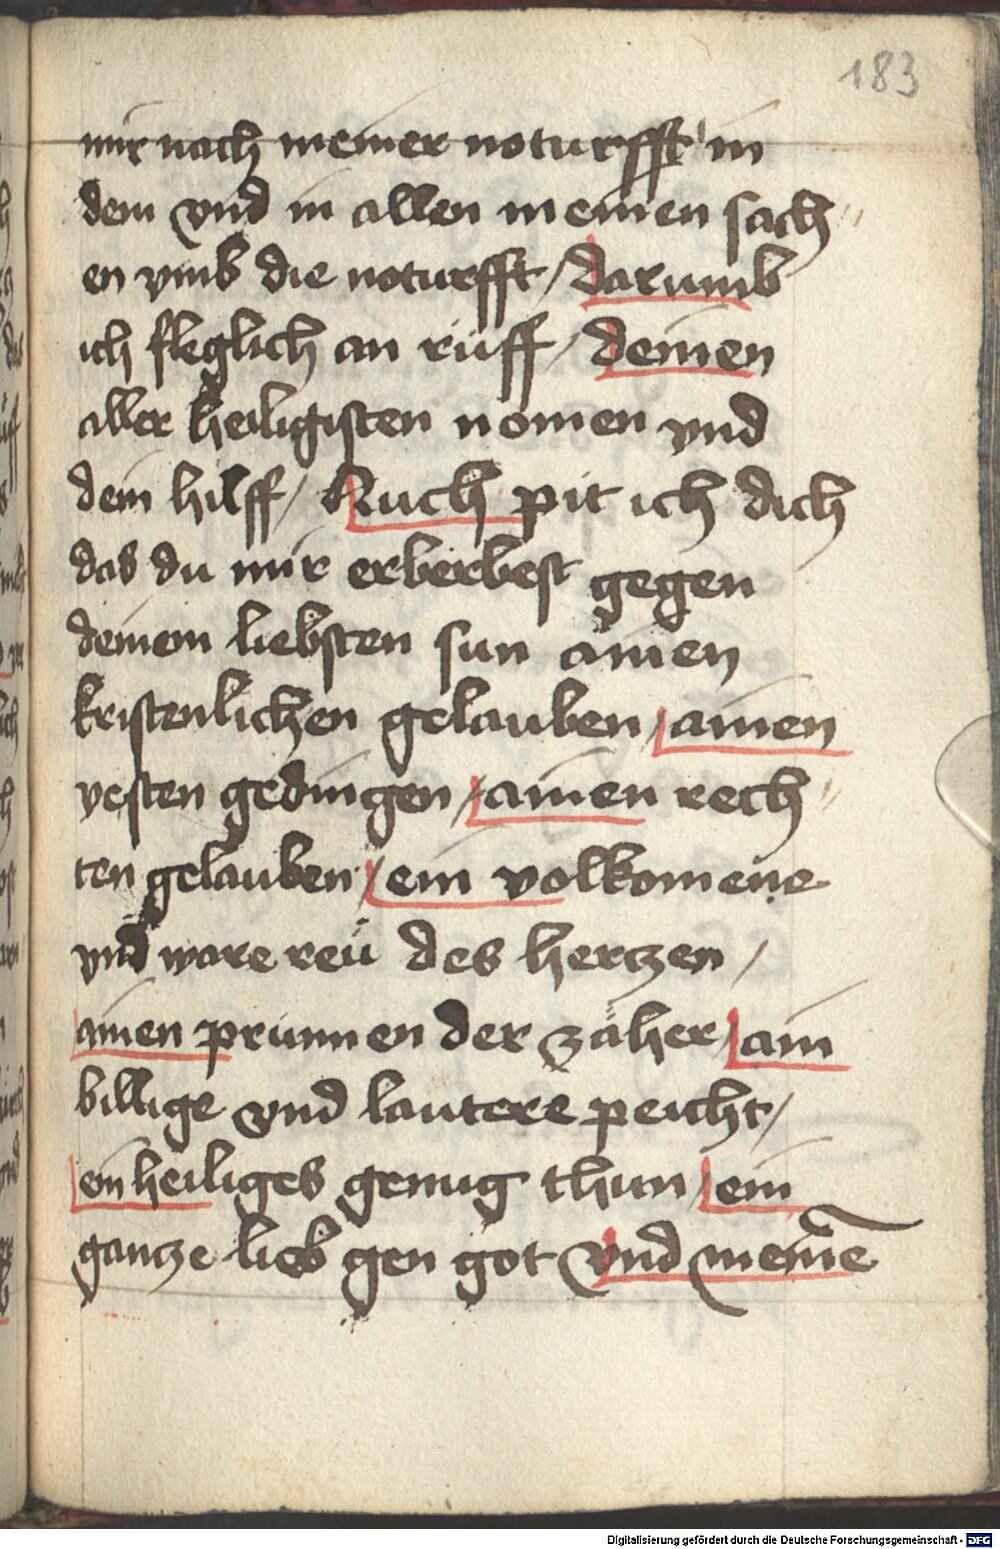 183
mir nach meiner noturfft in
dem vnd in allen meinen sach〃
en vmb die noturfft / darumb
ich fleglich an rüff / deinen
aller heiligisten nomen vnd
dein hilff / Auch pit ich dich
das du mir erberbest gegen
deinem liebsten sun ainen
kristenlichen gelauben / ainen
vesten gedingen / ainen rech〃
ten gelauben / ein volkomene
vnd ware reü des hertzen /
ainen prunnen der zäher / ain
billige vnd lautere peicht /
ein heiliges genug thun / ein
gantze lieb gen got vnd meinē
Digitalisierung gefördert durch die Deutsche Forschungsgemeinschaft - DFG